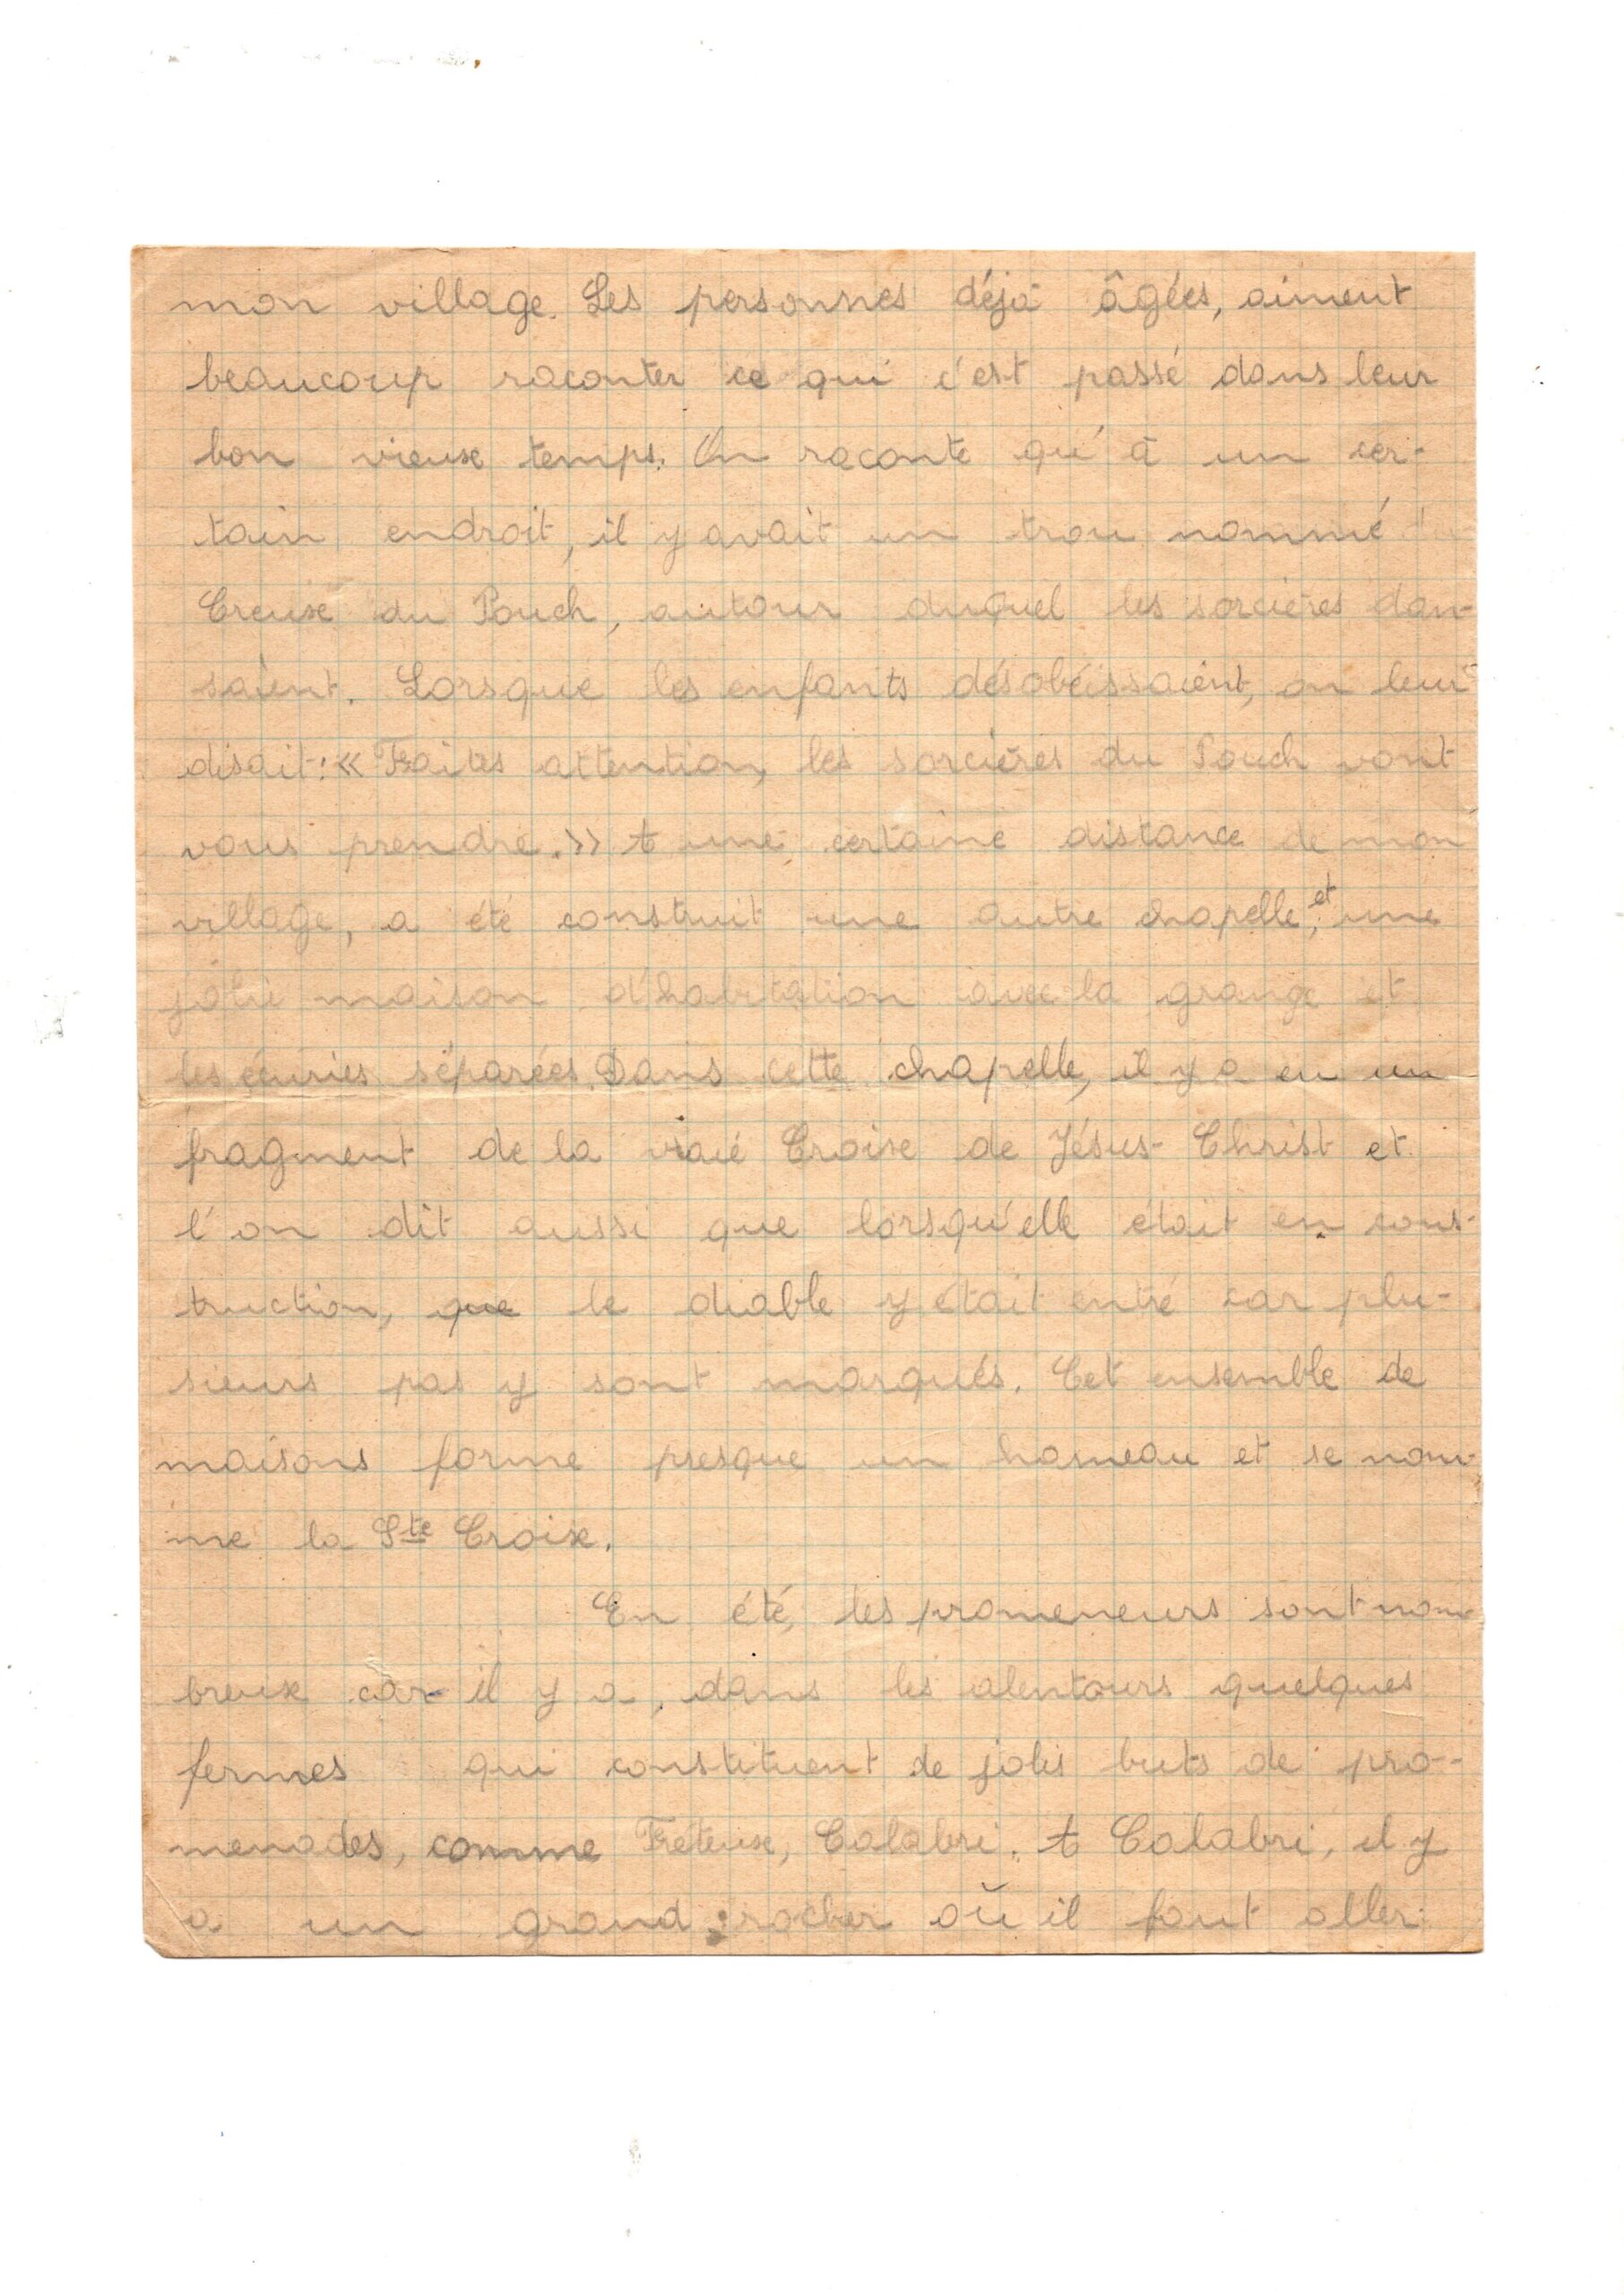 mon village. Les personnes déjà âgées, aiment
beaucoup raconter ce qui c'est passé dans leur
bon vieux temps. On raconte qu'à un cer-
tain endroit, il y avait un trou nommé
Creux du Pouch, autour duquel les sorcières dan-
saient. Lorsque les enfants désobéissaient, on leur
disait: « Faites attention, les sorcières du Pouch vont
vous prendre. » A une certaine distance de mon
village, a été construit une autre chapelle, et une
jolie maison d'habitation avec la grange et
les écuries séparées. Dans cette chapelle, il y a eu un
fragment de la vraie Croix de Jésus-Christ et
l'on dit aussi que lorsqu'elle était en cons-
truction, que le diable y était entré car plu-
sieurs pas y sont marqués. Cet ensemble de
maisons forme presque un hameau et se nom-
me la Ste Croix.
En été, les promeneurs sont nom-
breux car il y a, dans les alentours quelques
fermes qui constituent de jolis buts de pro-
menades, comme Fréteux, Calabri. A Calabri, il y
a un grand rocher où il faut aller